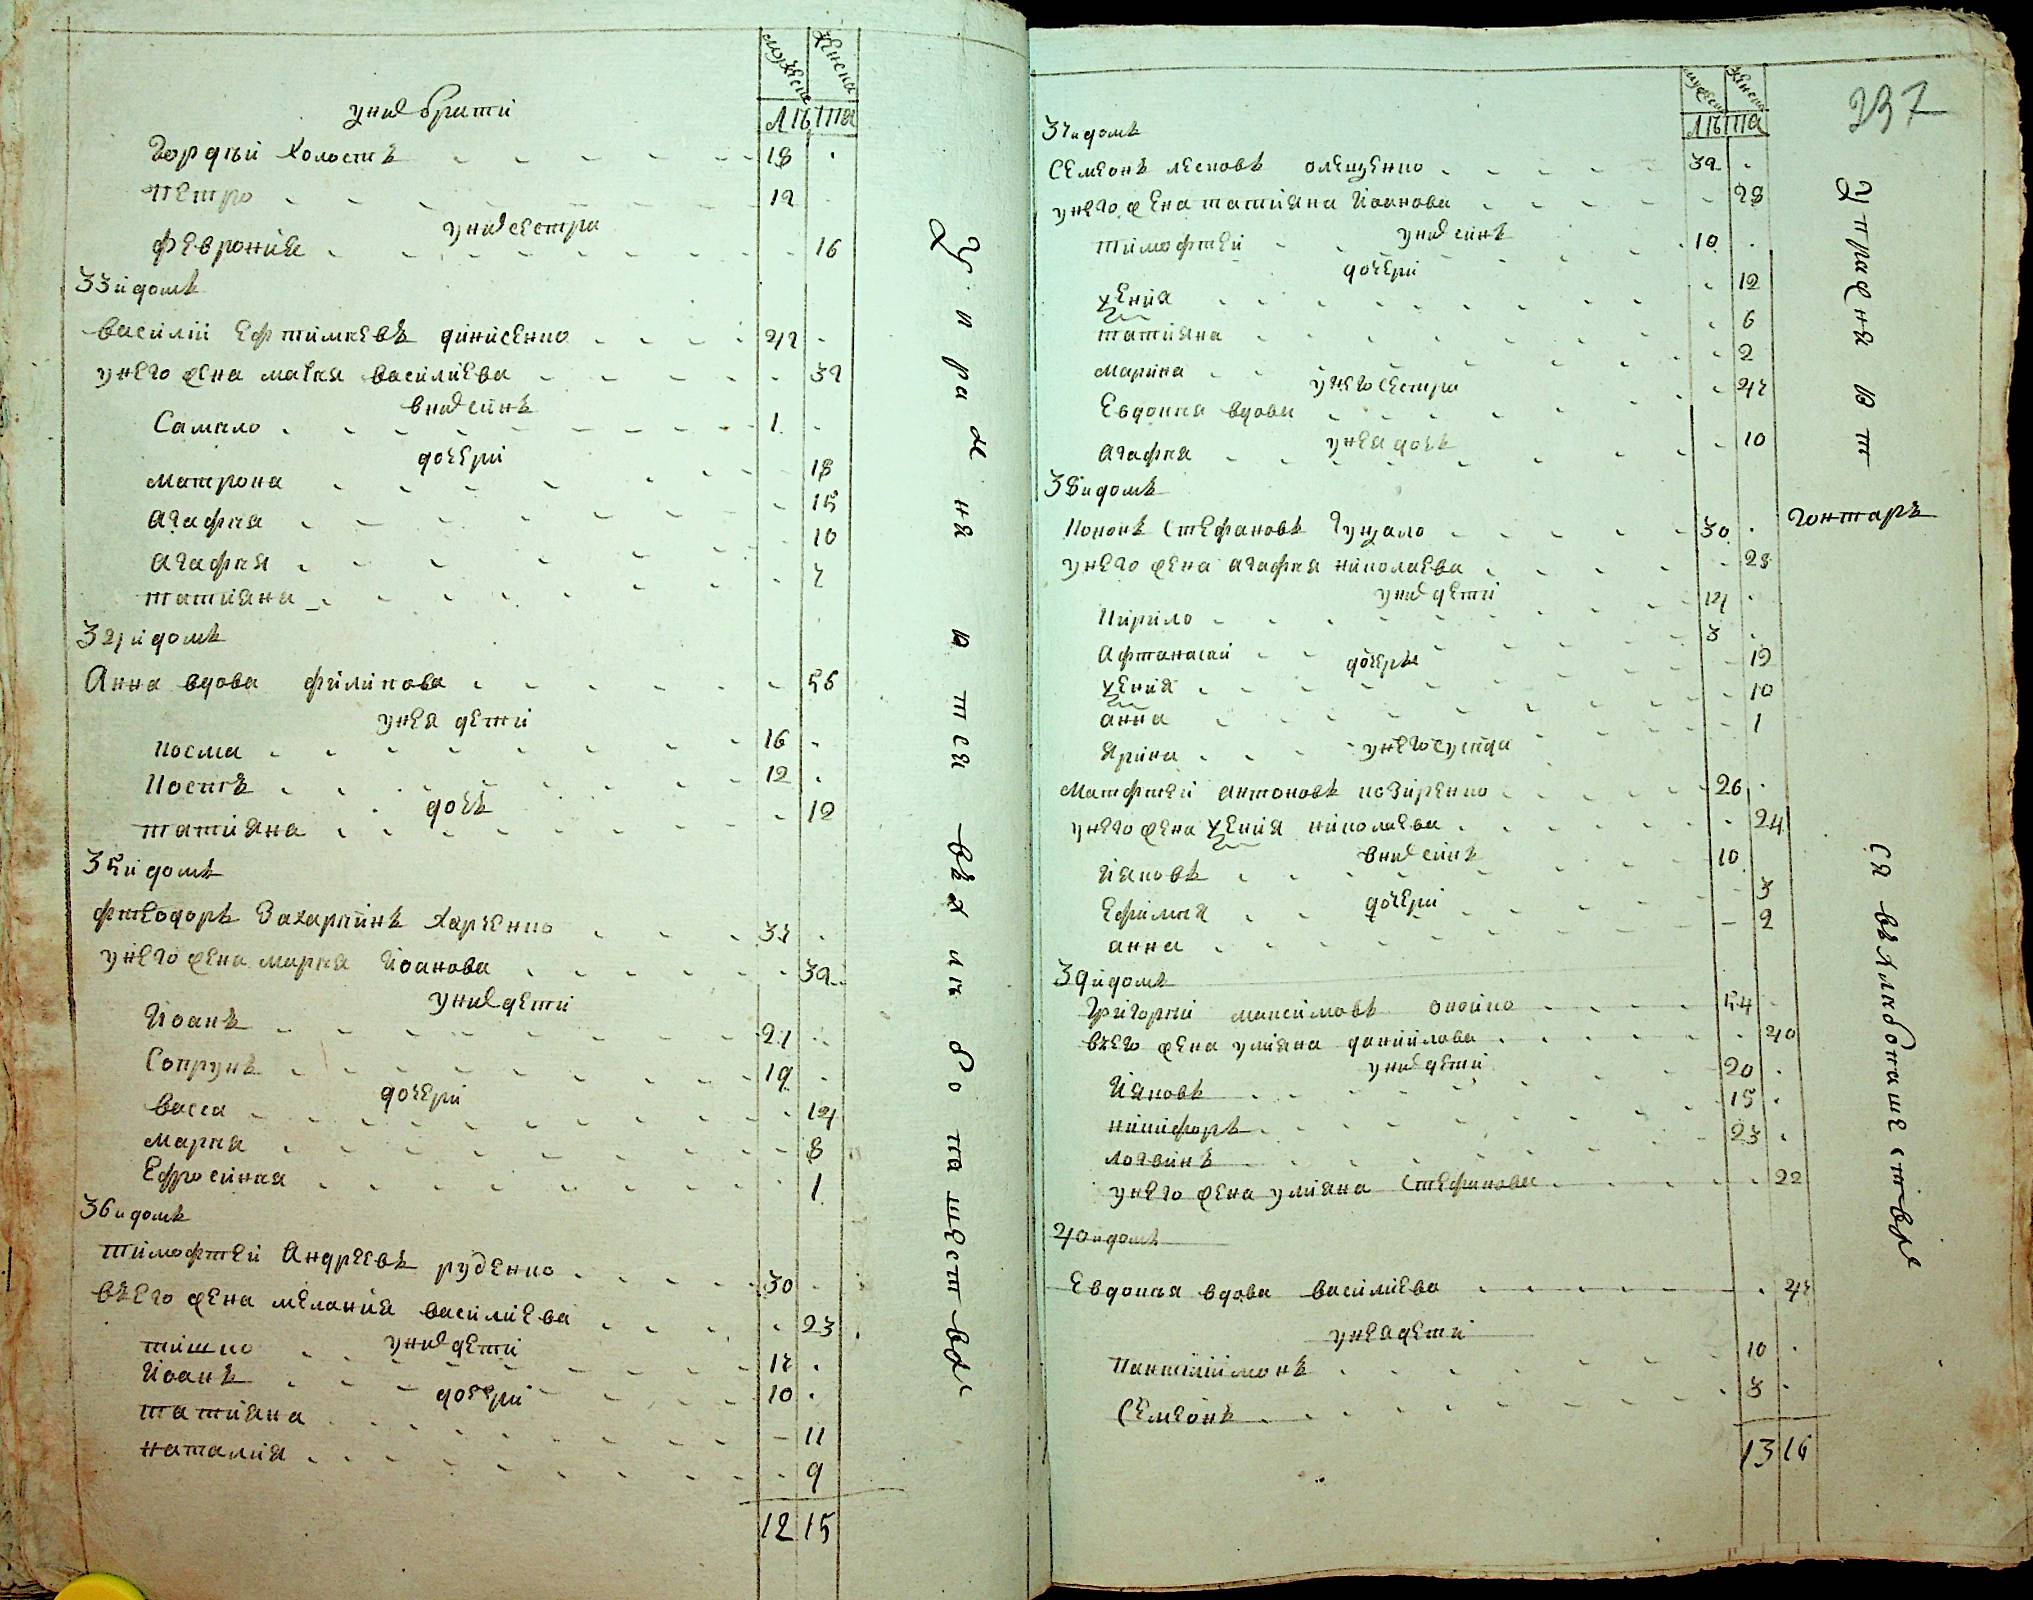 мужеска
женска
лѣта
уних брати
Гордѣй холостъ 18
Петро 12
уних сестра
Феврония 16
33 й домъ
Василий Ефтимиевъ динисенко 42
унего жена мария василиева 39
вних синъ
Самило 1
дочери
Матрона 18
Агафия 15
Агафия 10
татияна 7
34 й домъ
Анна вдова филипова 56
унея дети
Косма 16
Костъ 12
дочъ
татияна 12
35 й домъ
Фтеодоръ Захарийнъ Харченко 37
унего жена мария Иоанова 39
уних дети
Иоанъ 27
Сопрунъ 19
дочери
васса 14
Мария 8
Ефросиния 1
36 й домъ
тимофтей Андреевъ руденко 30
въего жена мелания василиева 23
уних дети
тишко 17
Иоанъ 10
дочери
татияна 11
наталия 9
12 15
237
мужеска
женска
лѣта
37 й домъ
Семеонъ лесковъ олещенко 39
унего жена татияна Иоанова 28
уних синъ
тимофтей 10
дочери
ҳения 12
татияна 6
Марина 2
унего сестра
Евдокия вдова 47
унея дочъ
Агафия 10
38 й домъ
Кононъ Стефановъ Гущало 30
гонтаръ
унего жена агафия николаева 28
уних дети
Кирило 14
Афтанасий 3
дочери
ҳения 12
анна 10
ярина 1
унего сусѣда
Матфтей антоновъ козиренко 26
унего жена ҳения николаева 24
вних синъ
Ияковъ 10
дочери
Ефимия 3
анна 2
39 й домъ
Григорий максимовъ окойко 54
въего жена улияна даниилова 40
уних дети
Ияковъ 20
никифоръ 15
логвинъ 23
унего жена улияна Стефанова 22
40 й домъ
Евдокия вдова василиева 47
унея дети
Пантилиймонъ 10
Семеонъ 3
13 16